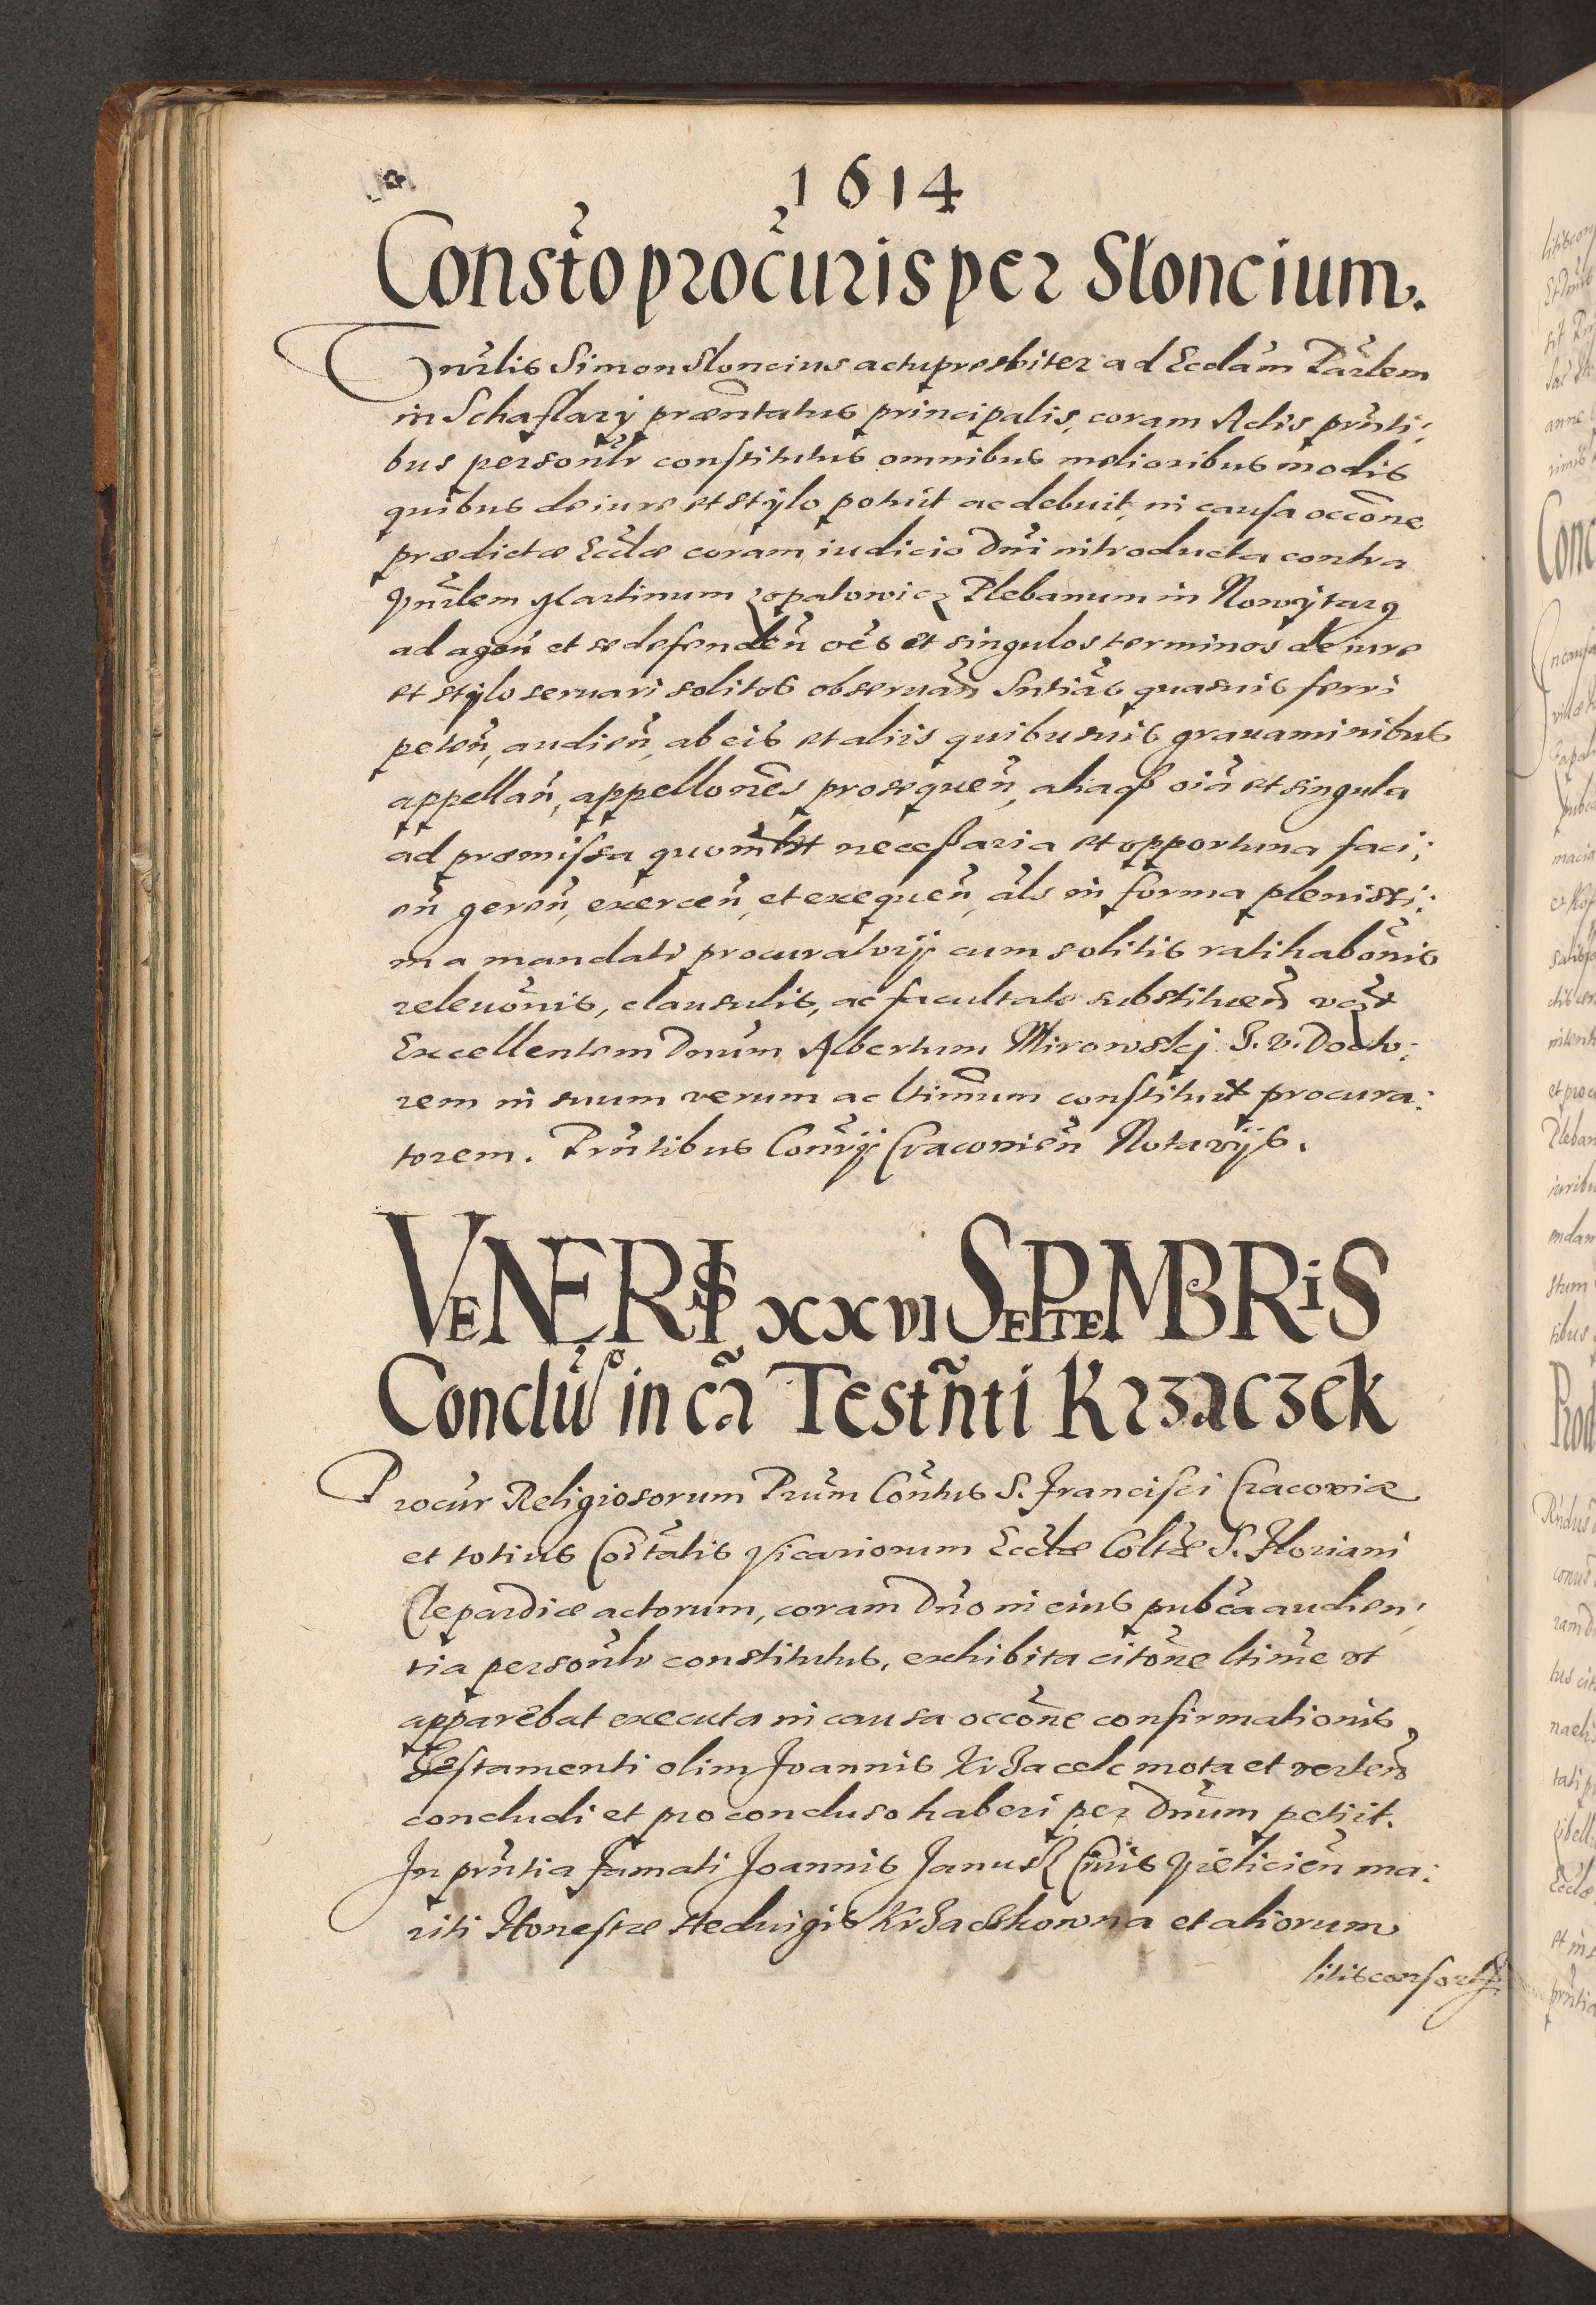 1614
Consto procuris per Sloncium.
Vnrlis Simon Sloncius actu presbiter ad Ecclam Parlem
in Schaflary præntatus principalis, coram Actis prnti:
bus personlr constitutus omnibus melioribus modis
quibus de iure et stylo potuit ac debuit, in causa occone
prædictæ Ecclæ coram iudicio Dni introducta contra
Vnrlem Martinum Lopatowicz Plebanum in Nowytarg
ad agen et se defenden oes et singulos terminos de iure
et stylo seruari solitos obseruan Sntias quasuis ferri
peten, audien, ab eis et aliis quibusuis grauaminibus
appellan, appellones prosequen, aliaq oia et singula
ad præmissa quomlbt necessaria et opportuna faci:
en geren, exercen, et exequen, als in forma plenissi:
ma mandati procuratorij cum solitis ratihabonis
releuonis, clausulis, ac facultate substituen
Excellentem Dnum Albertum Mirowskj I. V. Docto:
rem in suum verum ac ltimum constituit procura:
torem. Prntibus Conrij Cracouien Notarijs.
VENERIS XXVI SEPTEMBRIS
Conclus in ca Testnti Krzaczek
Procur Religiosorum Prum Contus S. Francisci Cracouiæ
et totius Coitatis Vicariorum Ecclæ Coltæ S. Floriani
Clepardiæ actorum, coram Dno in eius pubca audien:
tia personlr constitutus, exhibita citone ltime vt
apparebat executa in causa occone confirmationis
Testamenti olim Joannis Krzacek mota et verten
concludi et pro concluso haberi per Dnum petiit.
In prntia famati Joannis Janusz Ciuis Vielicien ma:
riti Honestæ Heduigis Krzaczkowna et aliorum
litisconsort